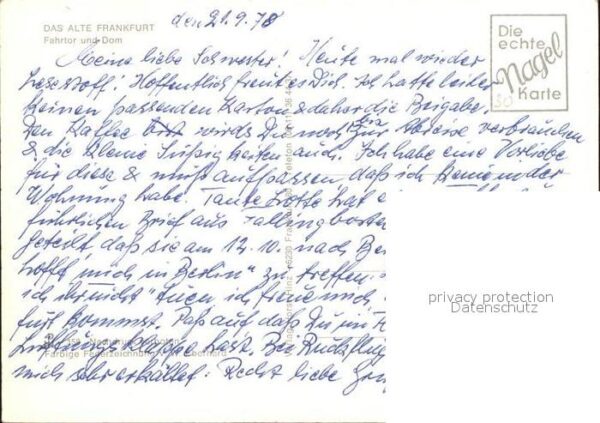 DAS ALTE FRANKFURT
Fahrtor und Dom
den 21.9.78
Die
echte
Nagel
Karte
Meine liebe Schwester! Heute mal wieder
Lesestoff. Hoffentlich freut es Dich. Ich hatte leider
keinen passenden Karton & daher die Beigabe.
Den Kaffee wirst Du noch bis zur Abreise verbrauchen
& die kleine Süßigkeiten auch. Ich habe eine Vorliebe
für diese & muß aufpassen daß ich keine in der
Wohnung habe. Tante Lotte hat
führlichen Brief aus Fallingbostel
geteilt daß sie am 12.10. nach Ber
hofft mich in Berlin" zu treffen.
ich ihr nicht ich freue mich
furt kommst. Paß auf daß Du im
Lüftungsklappe hast. Bei Rückflug
mich sehr erkältet. Recht liebe Grü
Farbige Federzeichnung
privacy protection
Datenschutz